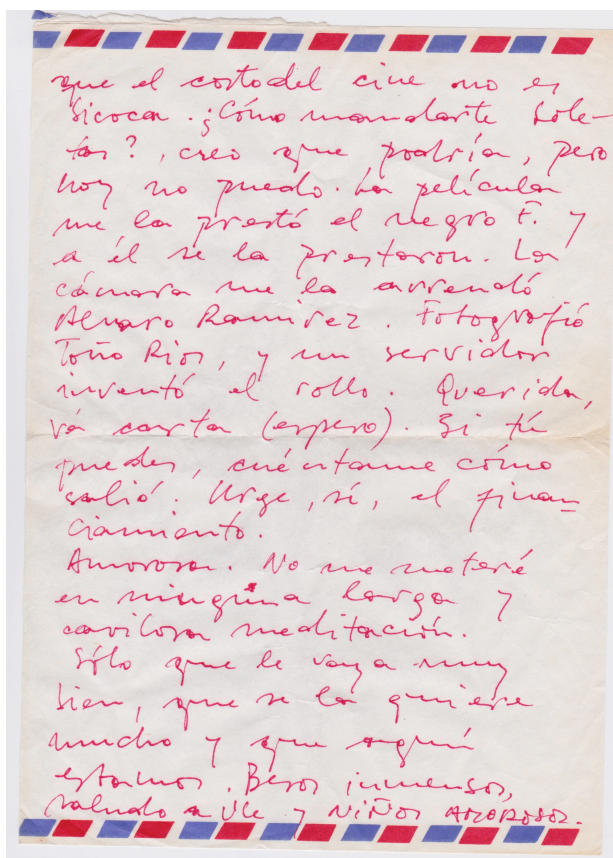 que el costo del cine no es
sicoca. ¿Cómo mandarte Sole-
tas?, creo que podría, pero
hoy no puedo. La película
me la prestó el negro F. y
a él se la prestaron. La
cámara me la arrendó
Alvaro Ramirez. Fotografió
Toño Rios, y un servidor
inventó el rollo. Querida,
vá carta (espero). Si tú
puedes, cuéntame cómo
salió. Urge, sí, el finan-
ciamiento.
Amorosa. No me meteré
en ninguna larga y
cavilosa meditación.
Sólo que le vaya muy
bien, que se la quiere
mucho y que aquí
estamos. Besos inmensos,
saludo a Vle y NIÑOS AMOROSOS.